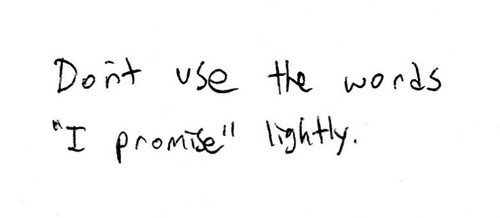 Don't use the words
"I promise" lightly.